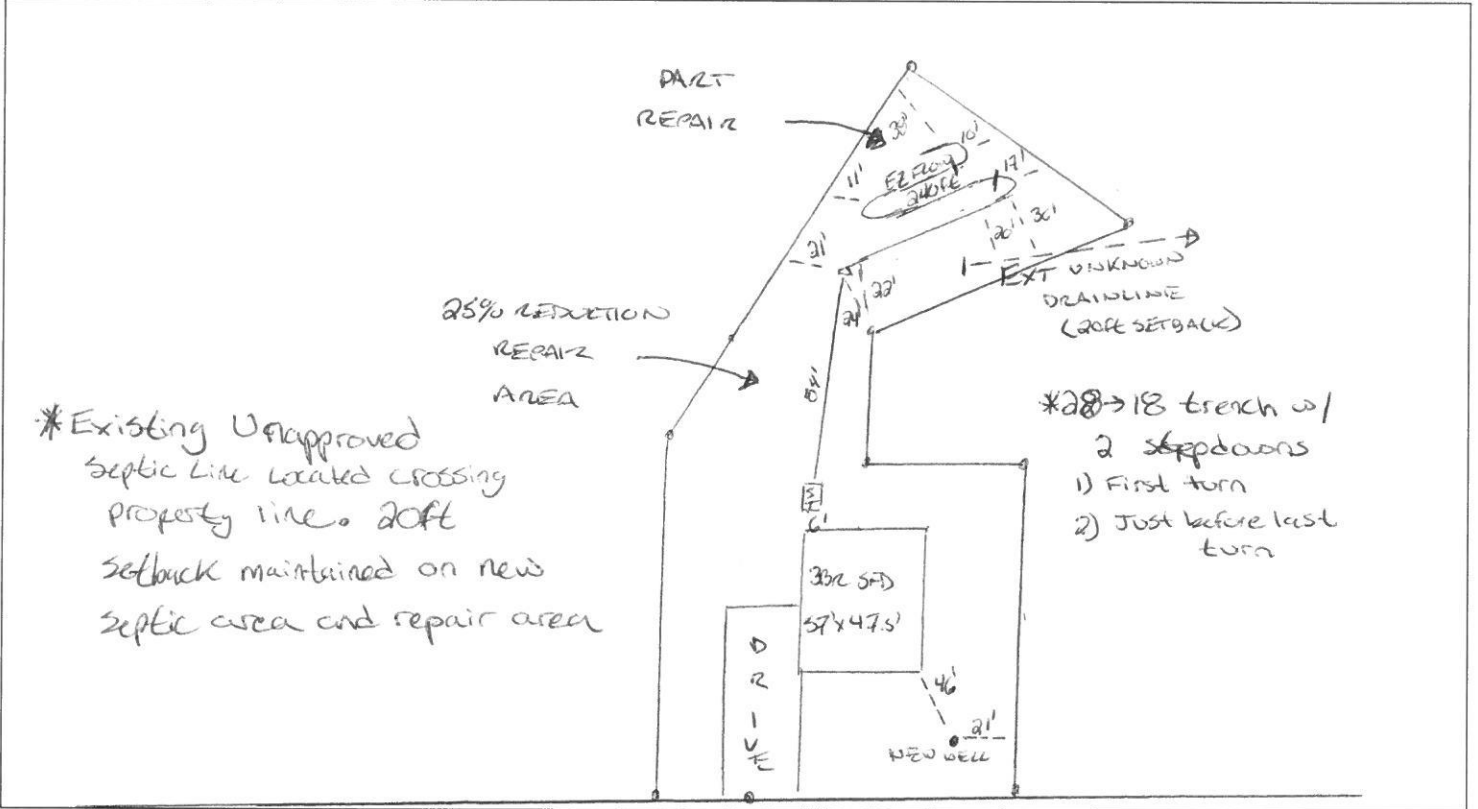 PART
REPAIR
38'
10'
11'
EZ FLOW
240ft
17'
21'
20'
30'
22'
24'
EXT UNKNOWN
DRAINLINE
(20ft SETBACK)
25% REDUCTION
REPAIR
AREA
84'
*Existing Unapproved
Septic Line Located crossing
property line. 20ft
Setback maintained on new
Septic area and repair area
*28→18 trench w/
2 stepdowns
1) First turn
2) Just before last
turn
ST
6'
3BR SFD
57'x47.5'
DRIVE
46'
21'
NEW WELL